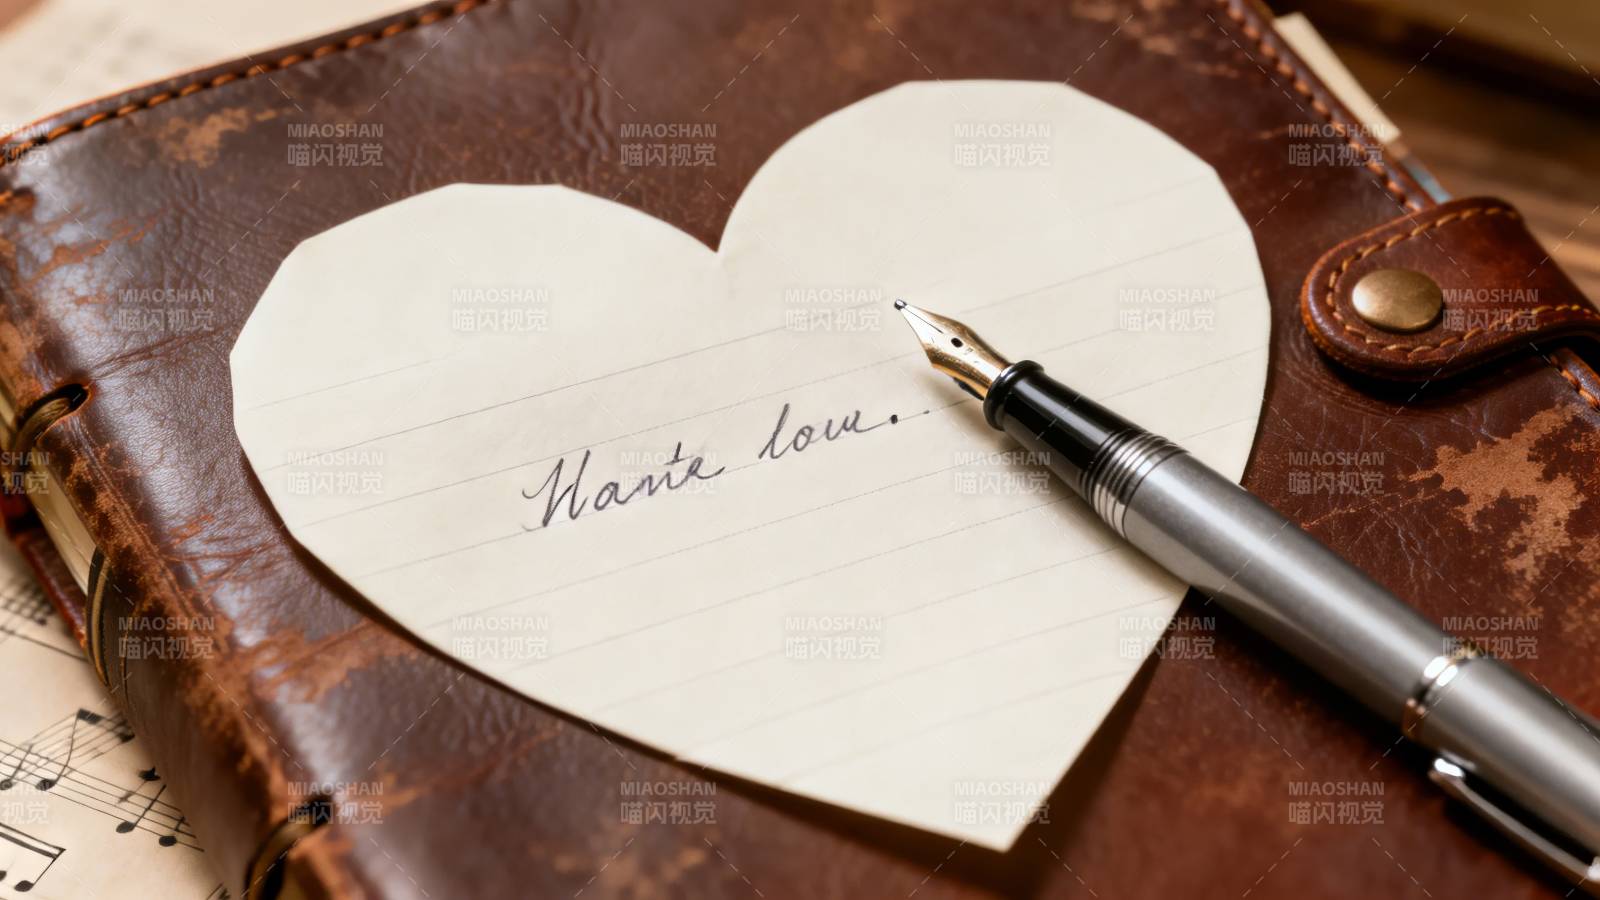 Hante lou..
MIAOSHAN
喵闪视觉